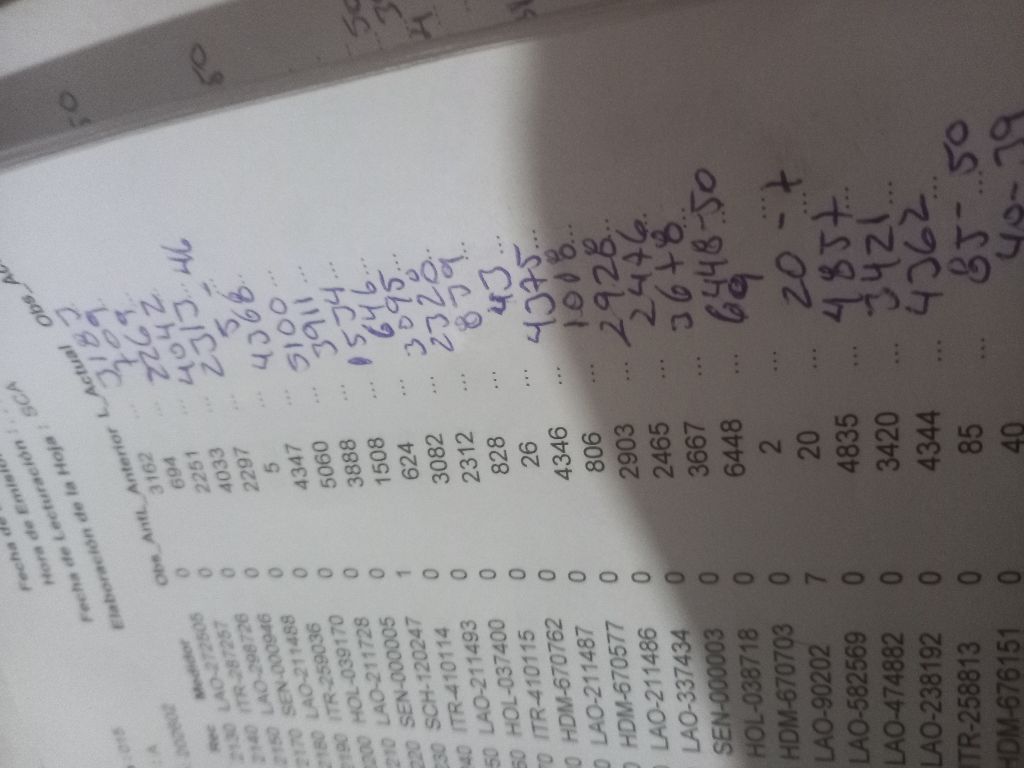 Fecha de Emisión :
Hora de Emisión :
Fecha de Lecturación : SCA
Elaboración de la Hoja :
Rec Medidor Obs_Anti. L_Anterior L_Actual Obs_Ac
2130 LAO-272505 0 3162 ... 3183
2140 ITR-287257 0 694 ... 709
2150 LAO-298726 0 2251 ... 2269
SEN-000946 0 4033 ... 4042
2170 LAO-211488 0 2297 ... 2313 - 46
2180 ITR-259036 0 5 ... 5 -
2190 HOL-039170 0 4347 ... 4368
200 LAO-211728 0 5060 ... 5100
210 SEN-000005 0 3888 ... 3911
220 SCH-120247 1 1508 ... 1534
230 ITR-410114 0 624 ... 646
LAO-211493 0 3082 ... 3095
50 HOL-037400 0 2312 ... 2320
60 ITR-4101115 0 828 ... 839
70 HDM-670762 0 26 ... 43
0 LAO-211487 0 4346 ... 4375
0 HDM-6670577 0 806 ... 1008
LAO-211486 0 2903 ... 2928
LAO-337434 0 2465 ... 2476
SEN-000003 0 3667 ... 3678
HOL-038718 0 6448 ... 6448-50
HDM-670703 0 2 ... 69
LAO-90202 7 20 ... 20 - 7
LAO-582569 0 4835 ... 4857
LAO-474882 0 3420 ... 3421
LAO-238192 0 4344 ... 4362
ITR-258813 0 85 ... 85 - 50
HDM-676151 0 40 40 - 39